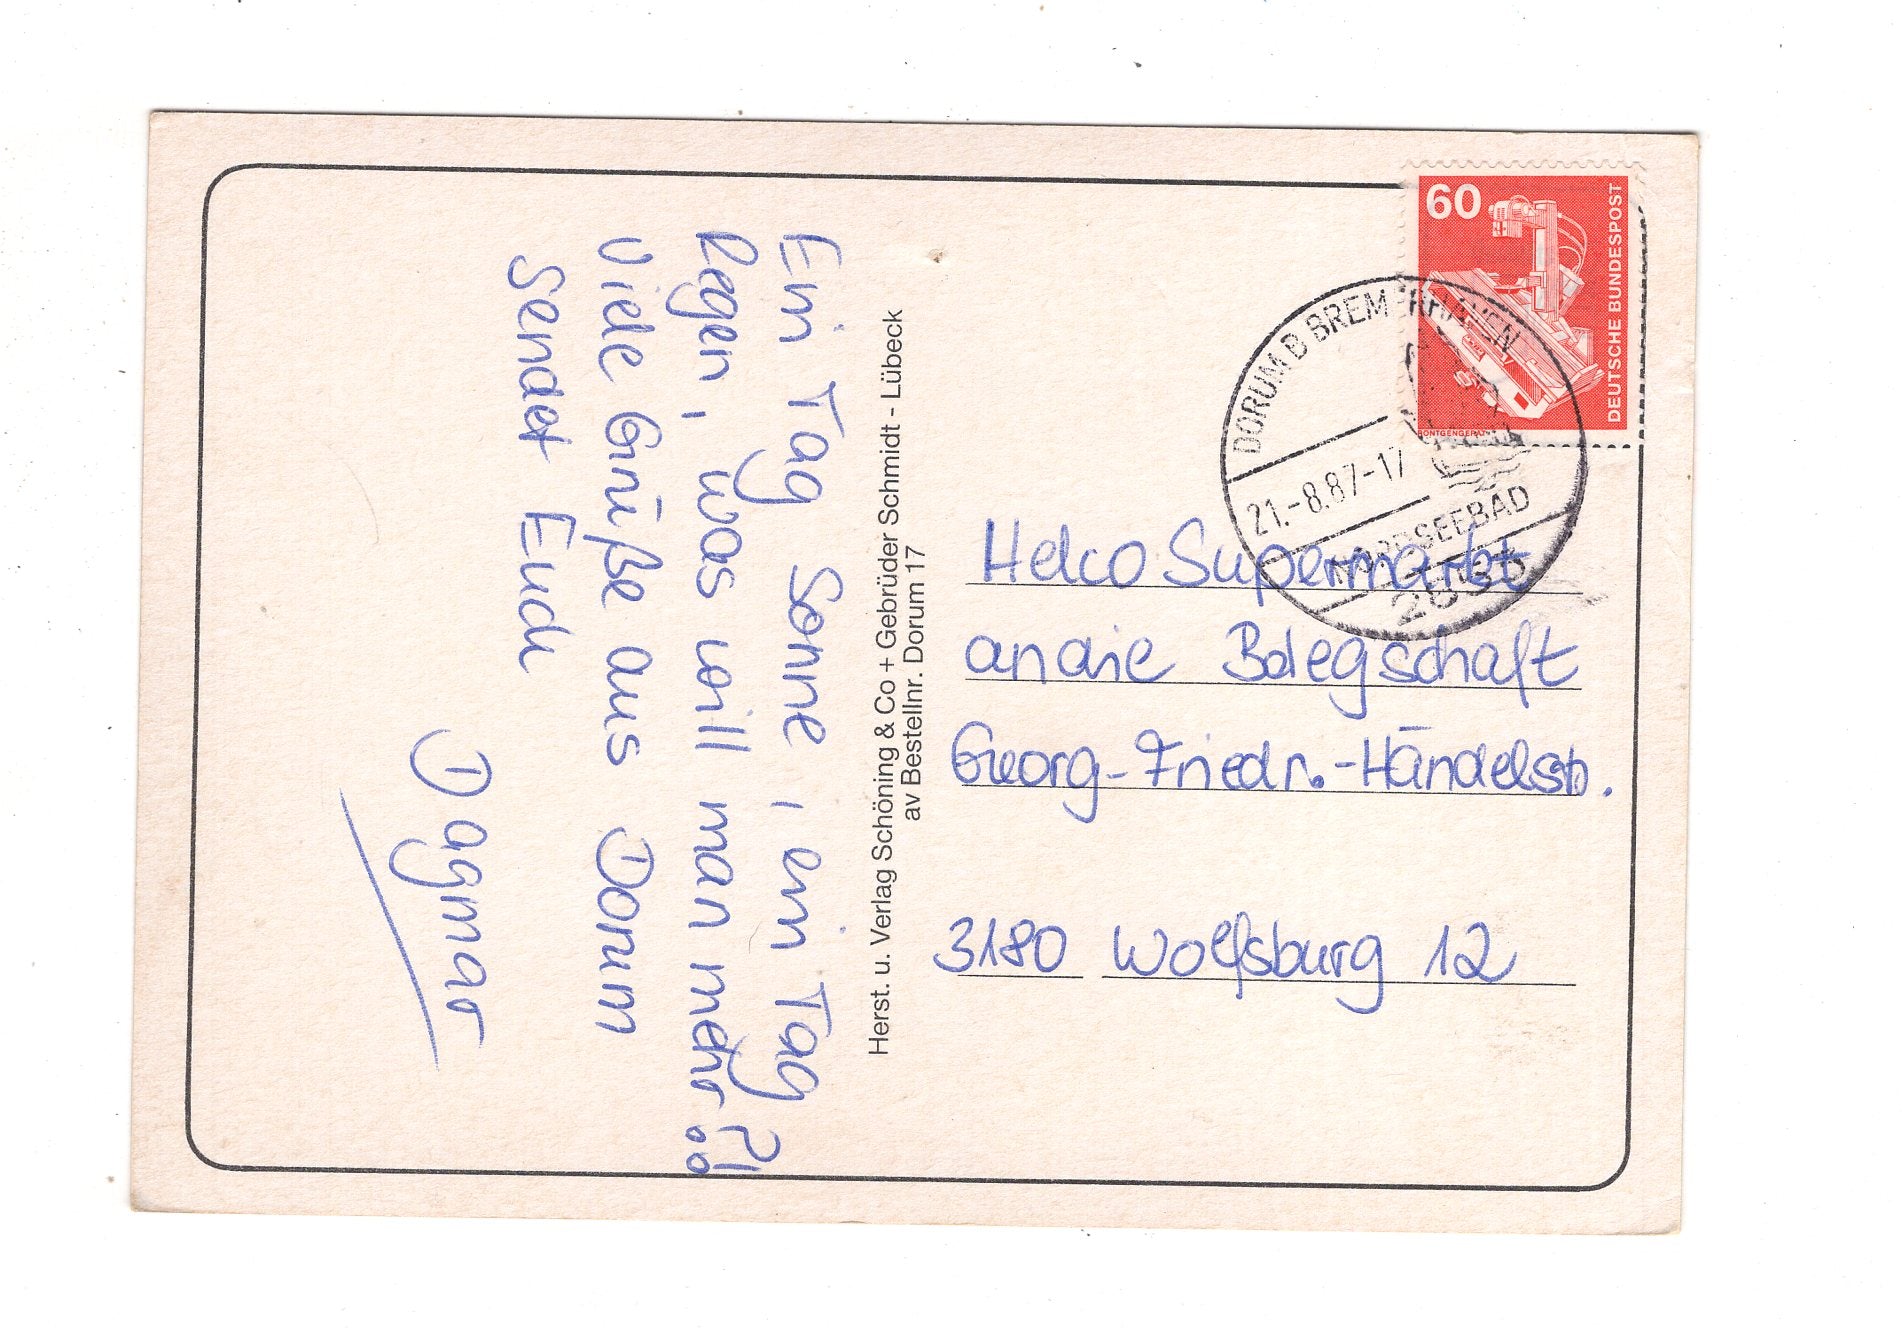 Ein Tag Sonne, ein Tag
Regen, was will man mehr?!
Viele Grüße aus Dorum
Sendet Euch
Dagmar
Herst. u. Verlag Schöning & Co + Gebrüder Schmidt - Lübeck
av Bestellnr. Dorum 17
60
DEUTSCHE BUNDESPOST
RÖNTGENGERÄT
DORUM B BREMERHAVEN
21.-8.87-17
NORDSEEBAD
Helco Supermarkt
an die Belegschaft
Georg-Friedr.-Händelstr.
3180 Wolfsburg 12